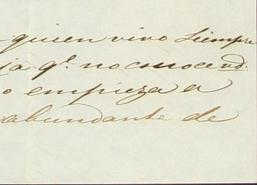 quien vivo siempre
ja qe. no conoce vd.
o empieza a
abundante de